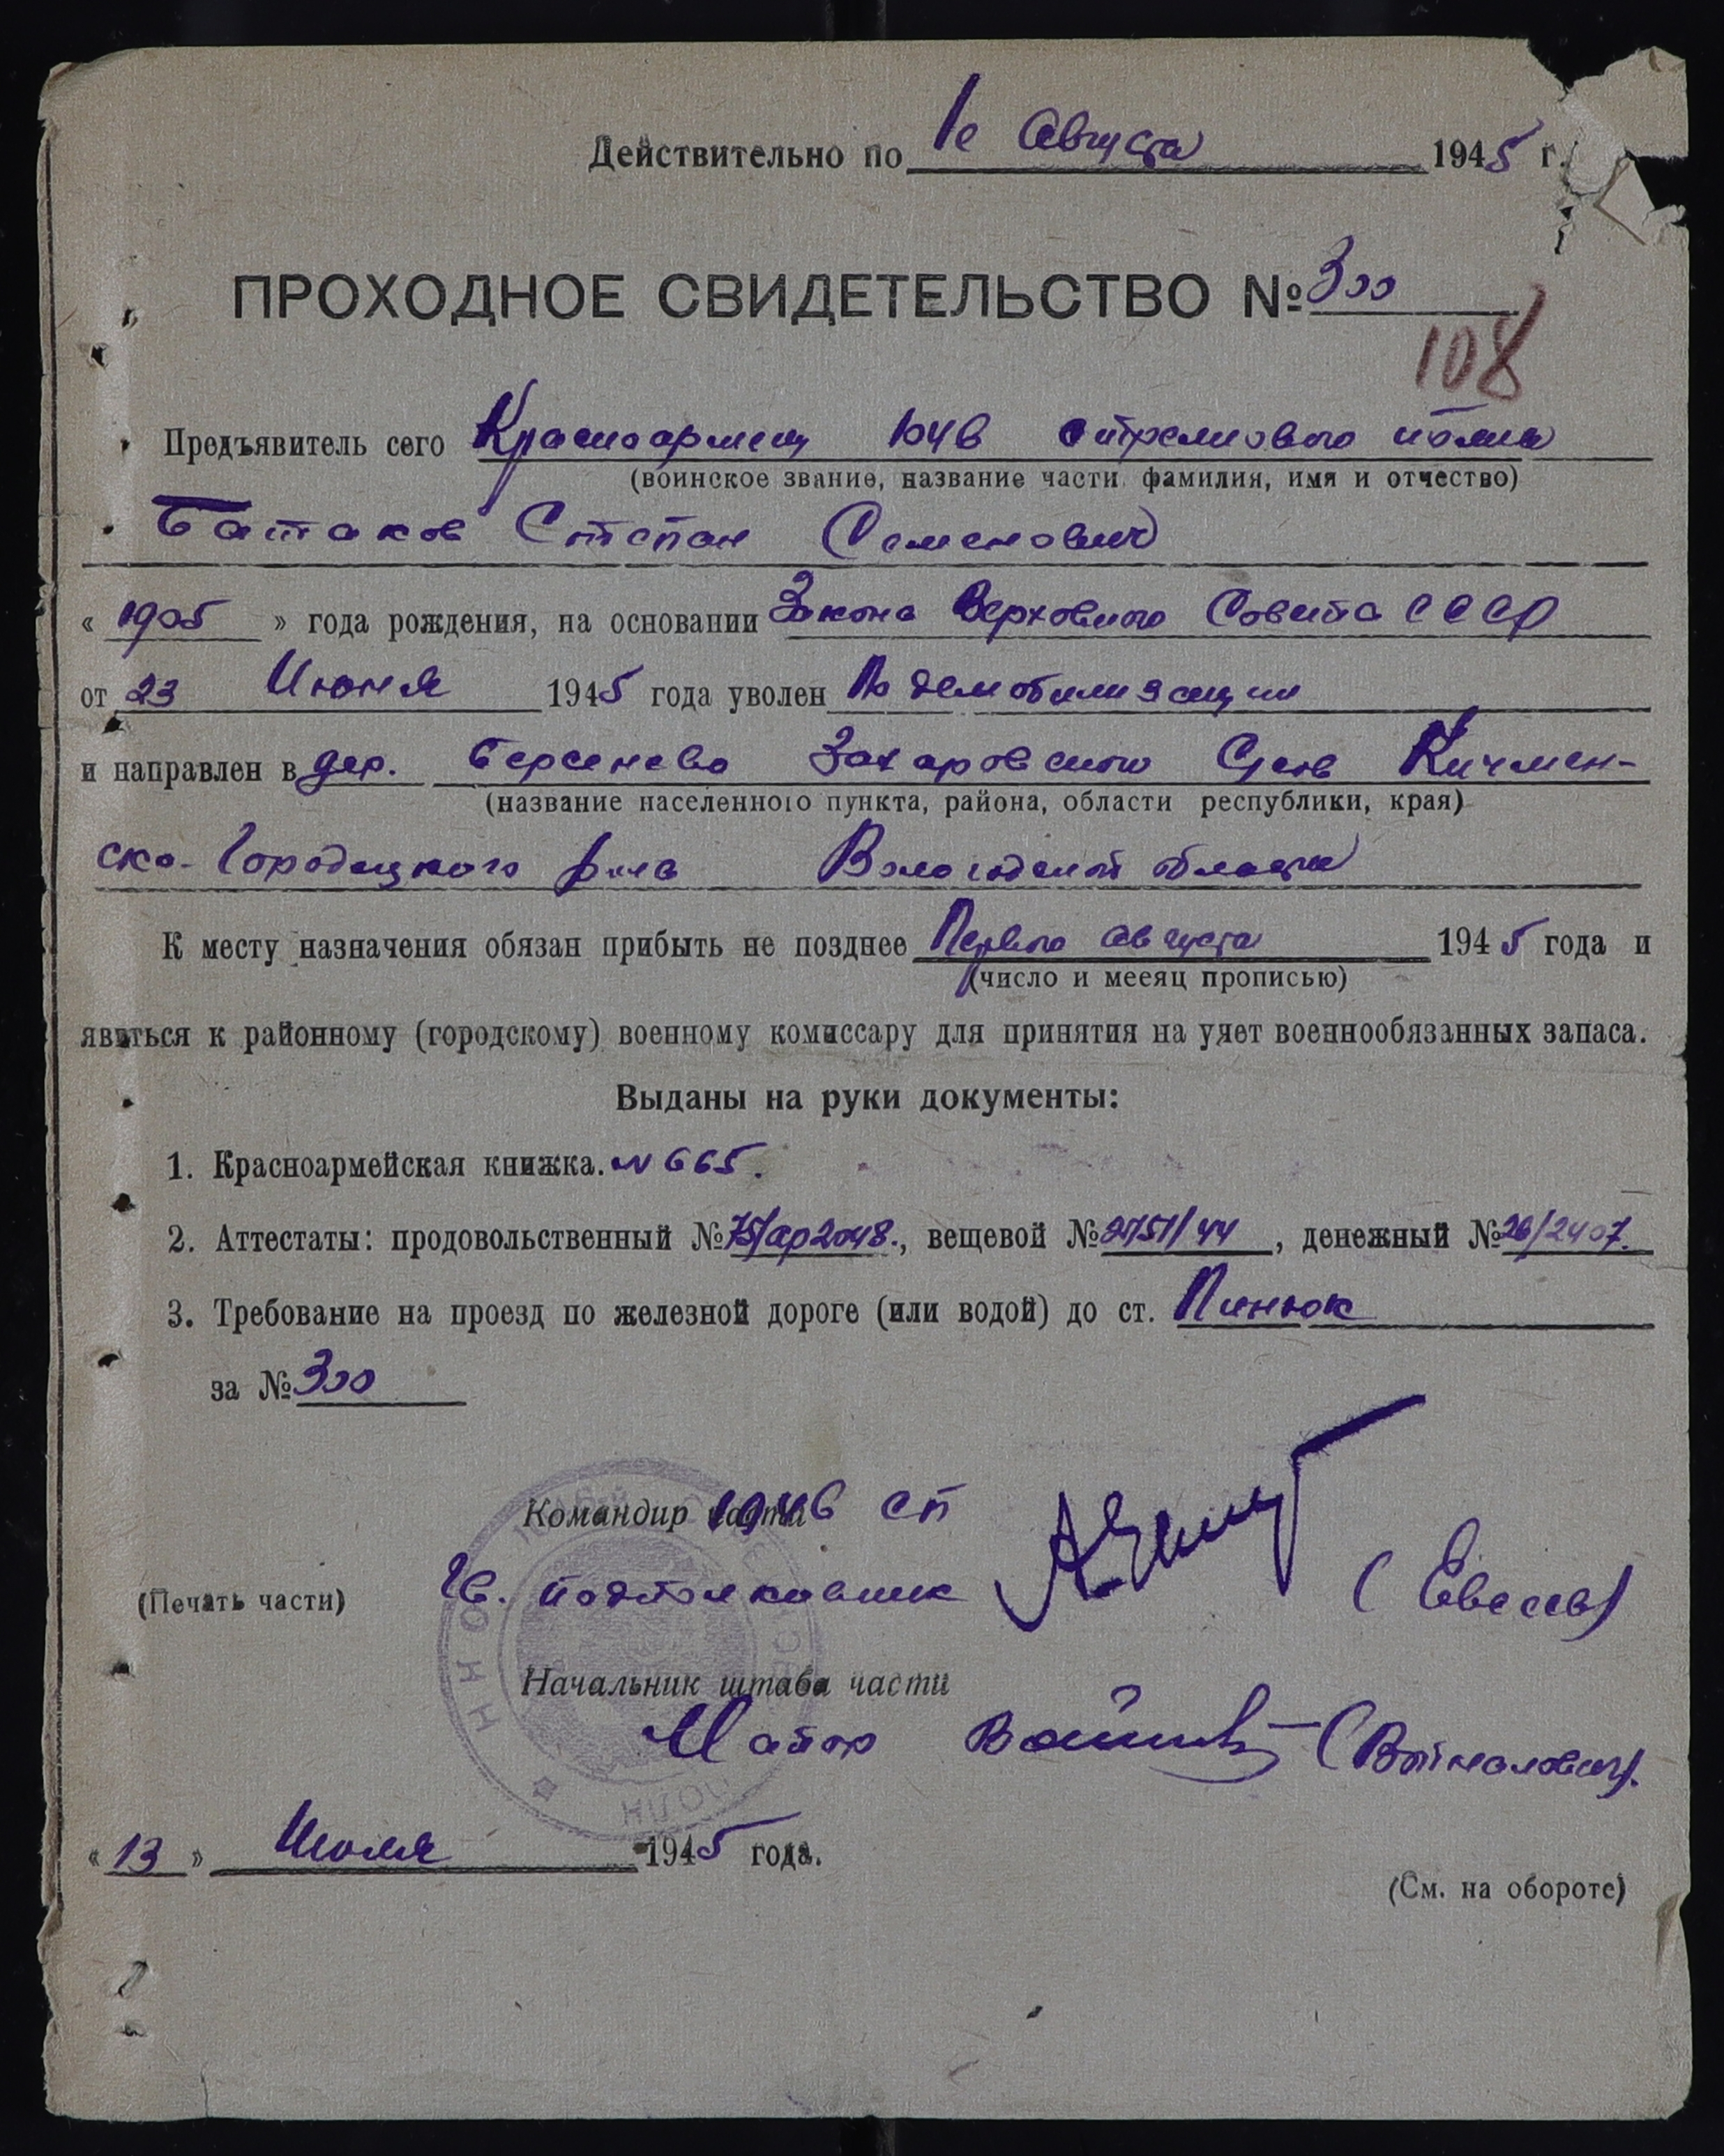 Действительно по 1е Августа 1945 г.
ПРОХОДНОЕ СВИДЕТЕЛЬСТВО № 300
108
Предъявитель сего Красноармеец 1046 стрелкового полка
(воинское звание, название части фамилия, имя и отчество)
Батаков Степан Семенович
« 1905 » года рождения, на основании Закона Верховного Совета СССР
от 23 Июня 1945 года уволен По демобилизации
и направлен в дер. Берсенево Захаровского С/сов Кичмен-
(название населенного пункта, района, области республики, края)
ско-Городецкого р-на Вологодской области
К месту назначения обязан прибыть не позднее Первого августа 1945 года и
(число и меεяц прописью)
явиться к районному (городскому) военному комиссару для принятия на учет военнообязанных запаса.
Выданы на руки документы:
1. Красноармейская книжка. № 665.
2. Аттестаты: продовольственный № 75/ар2048., вещевой № 2751/44, денежный № 26/2407.
3. Требование на проезд по железной дороге (или водой) до ст. Пинюк
за № 300
Командир части 1046 СП
(Печать части) Гв. подполковник
Начальник штаба части
Майор (Войналович).
« 13 » Июля 1945 года.
(См. на обороте)